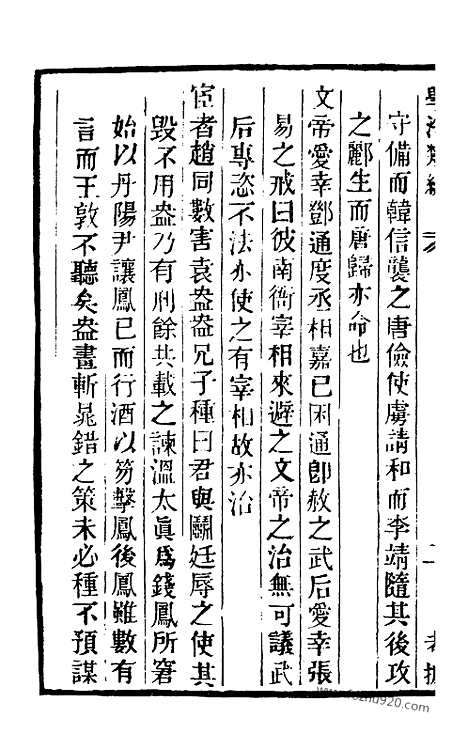 守備而韓信襲之唐儉使虜請和而李靖隨其後攻
之酈生而唐歸亦命也
文帝愛幸鄧通度丞相嘉已困通卽赦之武后愛幸張
易之戒曰彼南衙宰相來避之文帝之治無可議武
后專恣不法亦使之有宰相故亦治
宦者趙同數害袁盎盎兄子種曰君與鬬廷辱之使其
毀不用盎乃有刑餘共載之諫溫太眞爲錢鳳所窘
始以丹陽尹讓鳳已而行酒以笏擊鳳後鳳雖數有
言而王敦不聽矣盎畫斬晁錯之策未必種不預謀